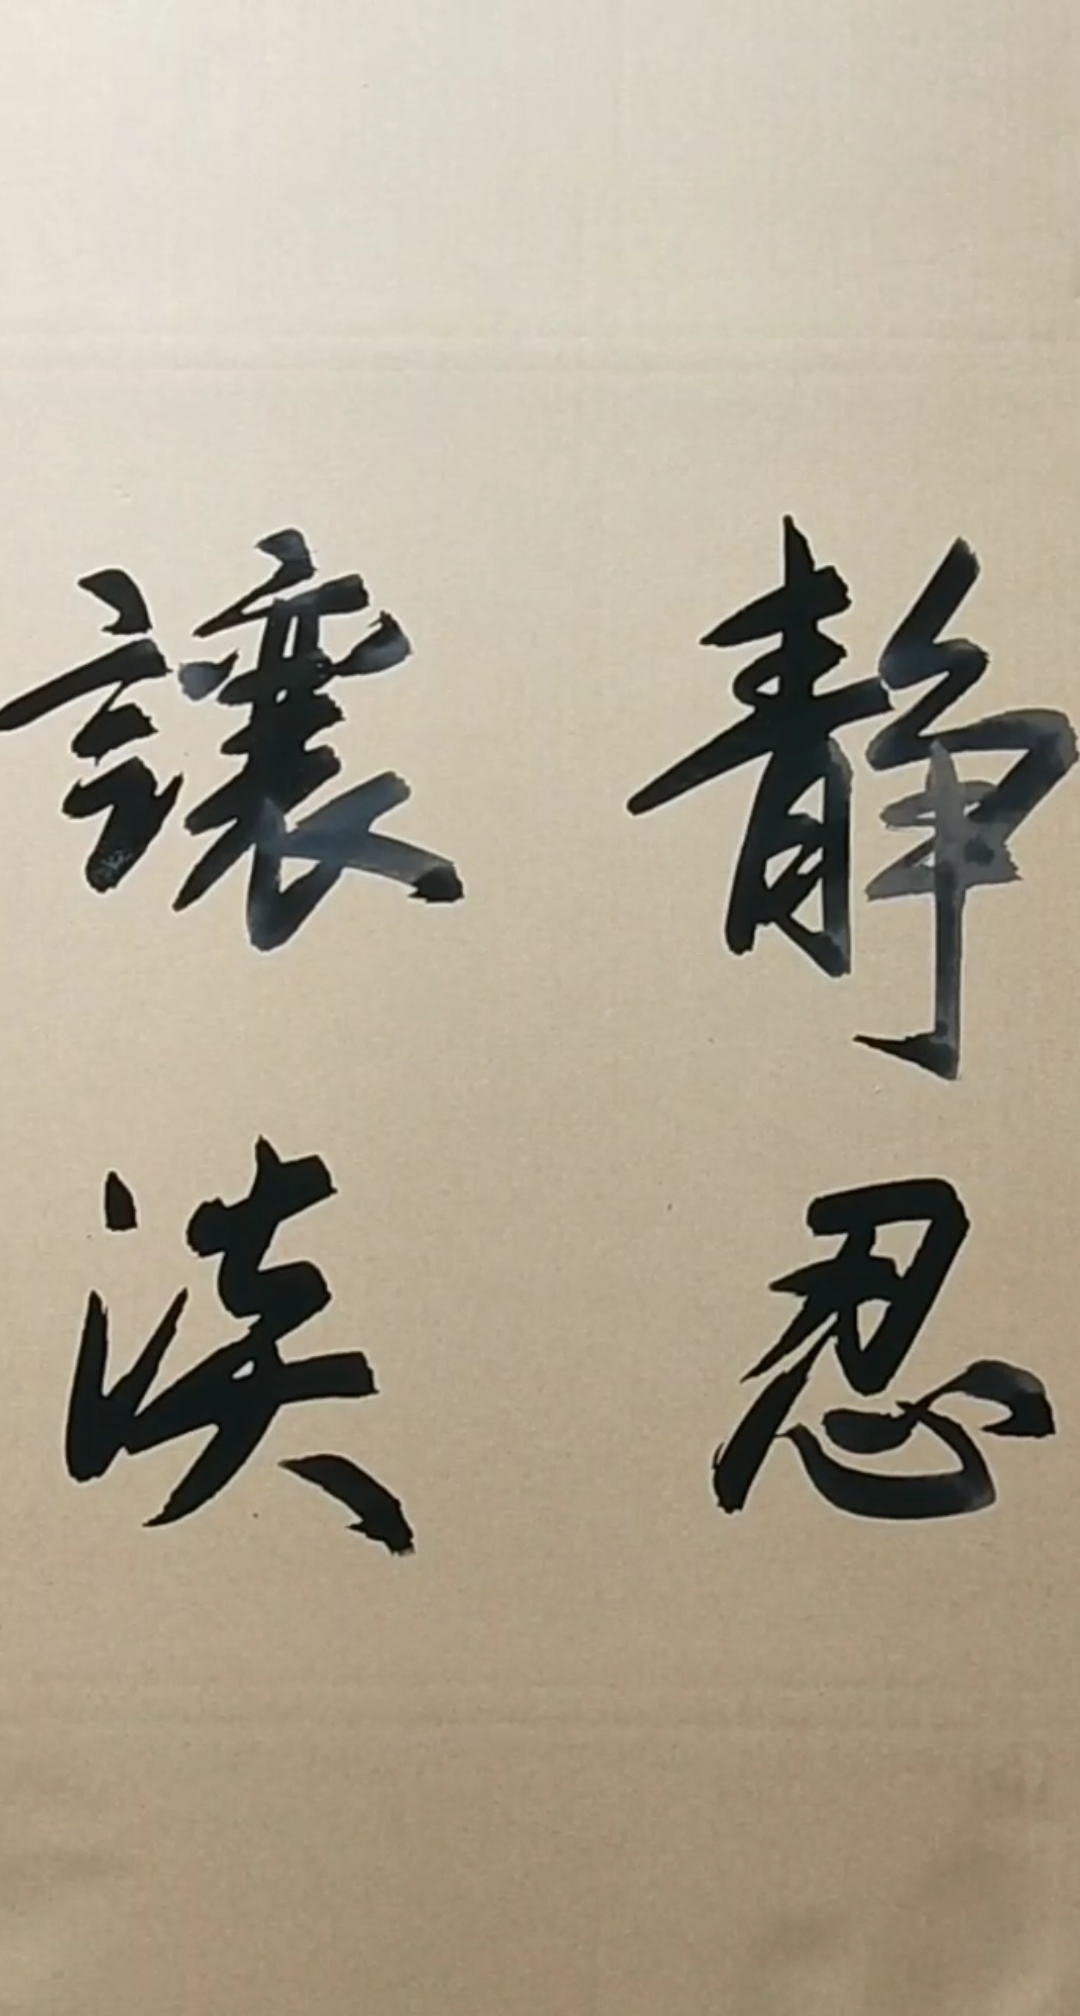 静忍
讓淡